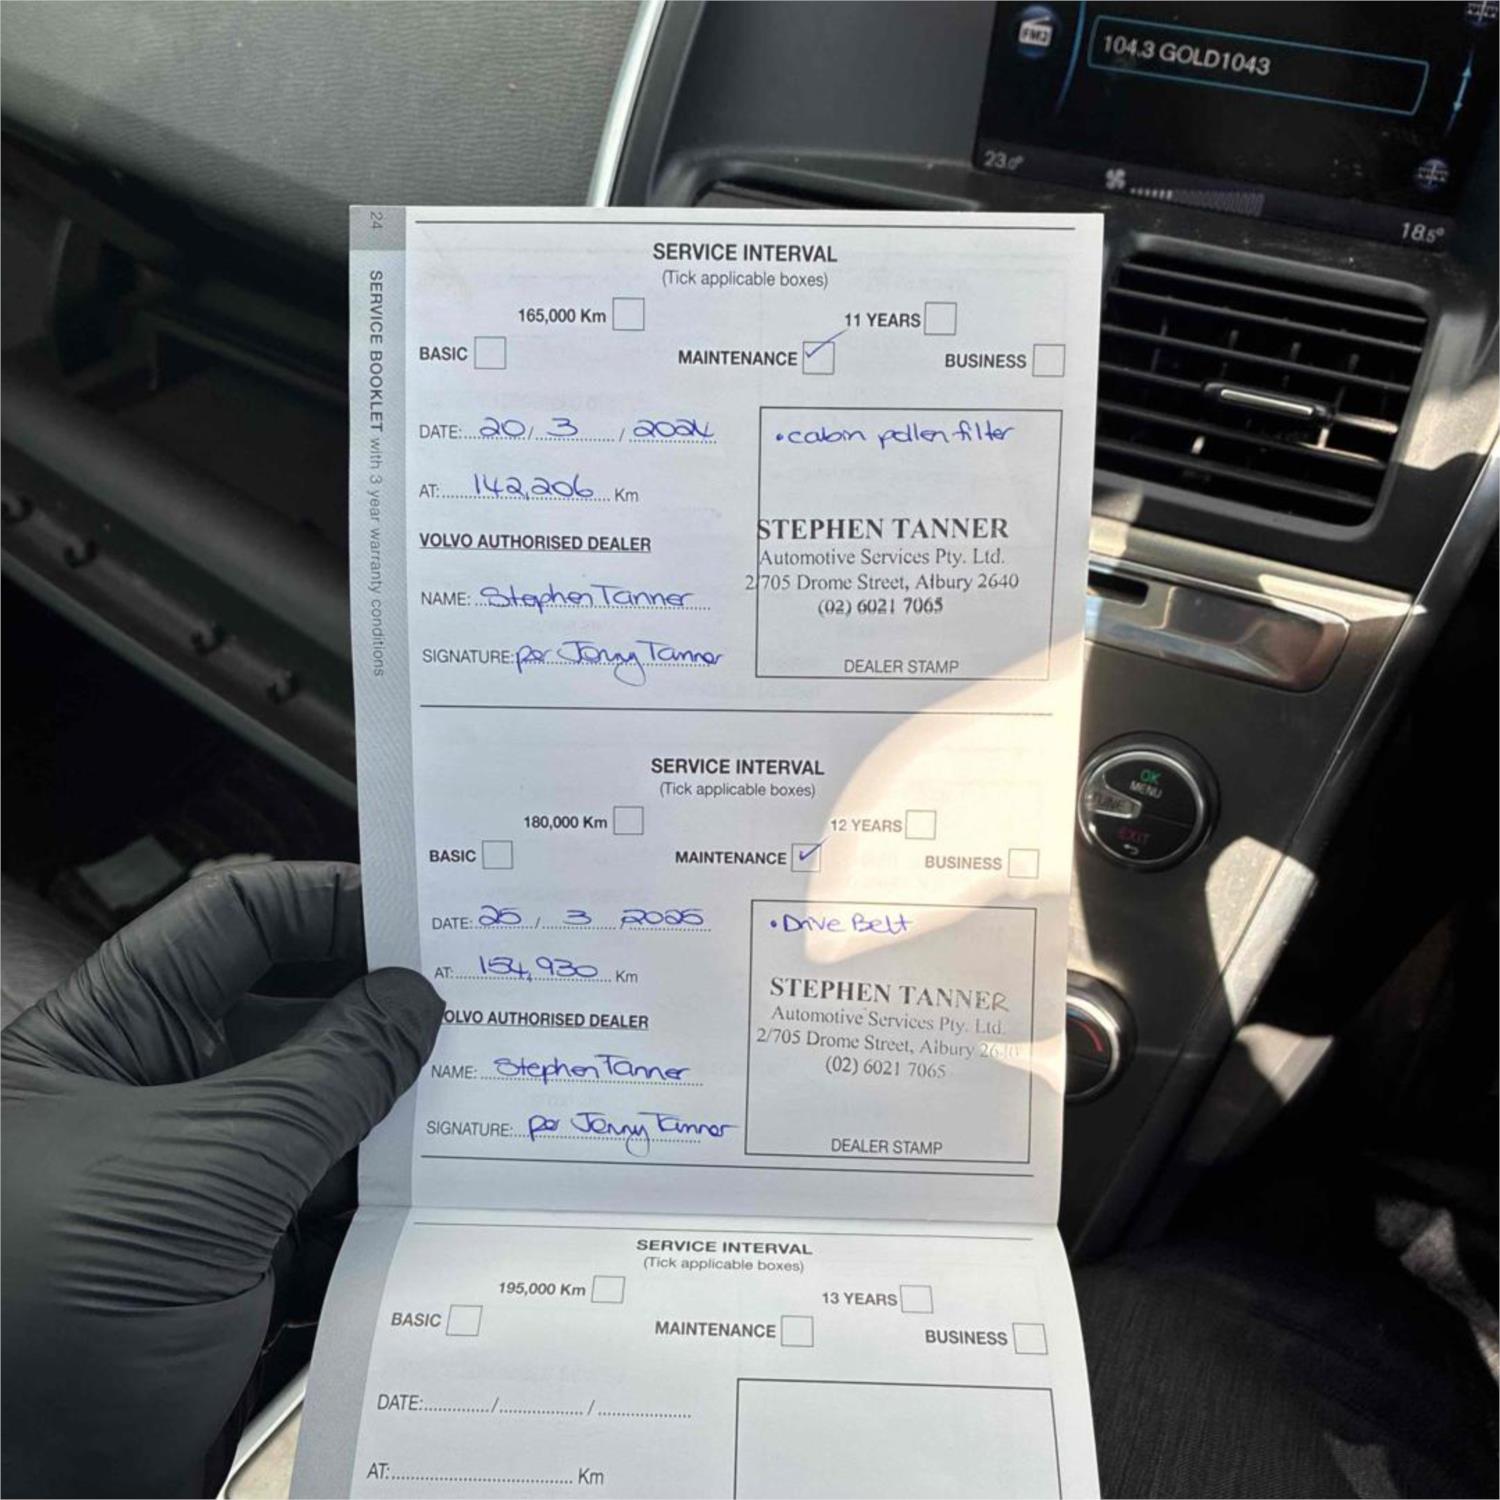 FM2
104.3 GOLD1043
23.0°
18.5°
24
SERVICE BOOKLET with 3 year warranty conditions
SERVICE INTERVAL
(Tick applicable boxes)
165,000 Km
11 YEARS
BASIC
MAINTENANCE
BUSINESS
DATE: 20 / 3 / 2024
• cabin pollen filter
AT: 142,206 Km
STEPHEN TANNER
Automotive Services Pty. Ltd.
2/705 Drome Street, Albury 2640
(02) 6021 7065
VOLVO AUTHORISED DEALER
NAME: Stephen Tanner
SIGNATURE: per Jenny Tanner
DEALER STAMP
SERVICE INTERVAL
(Tick applicable boxes)
180,000 Km
12 YEARS
BASIC
MAINTENANCE
BUSINESS
DATE: 25 / 3 2025
• Drive Belt
AT: 154,930 Km
STEPHEN TANNER
Automotive Services Pty. Ltd.
2/705 Drome Street, Albury 2640
(02) 6021 7065
OLVO AUTHORISED DEALER
NAME: Stephen Tanner
SIGNATURE: per Jenny Tanner
DEALER STAMP
OK
MENU
TUNE
EXIT
SERVICE INTERVAL
(Tick applicable boxes)
195,000 Km
13 YEARS
BASIC
MAINTENANCE
BUSINESS
DATE: / /
AT: Km